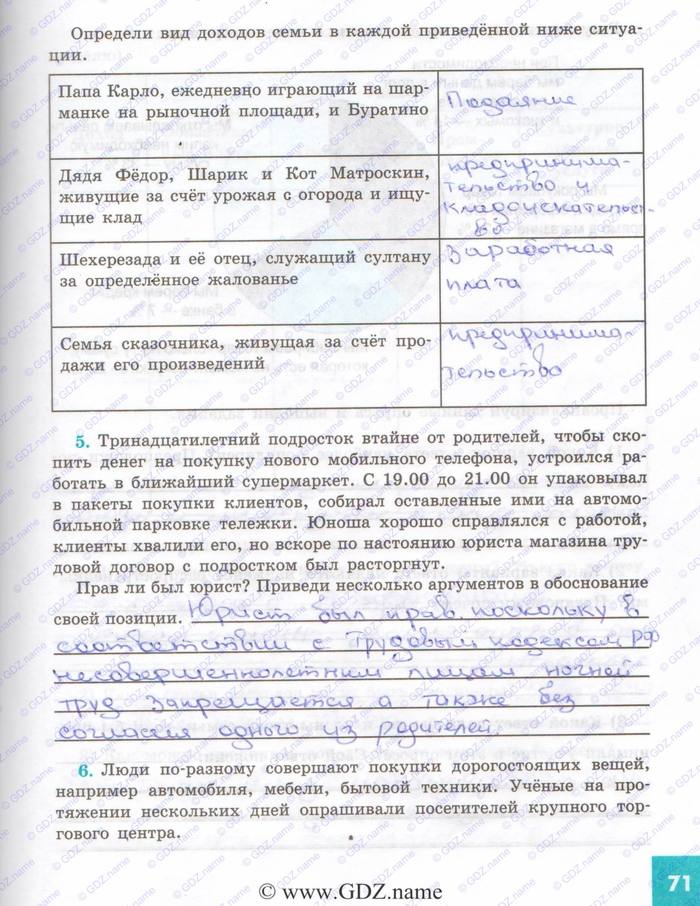 Определи вид доходов семьи в каждой приведённой ниже ситуа-
ции.
Папа Карло, ежедневно играющий на шар-
манке на рыночной площади, и Буратино
Подаяние
Дядя Фёдор, Шарик и Кот Матроскин,
живущие за счёт урожая с огорода и ищу-
щие клад
предпринима-
тельство и
кладоискательст-
во
Шехерезада и её отец, служащий султану
за определённое жалованье
Заработная
плата
Семья сказочника, живущая за счёт про-
дажи его произведений
предпринима-
тельство
5. Тринадцатилетний подросток втайне от родителей, чтобы ско-
пить денег на покупку нового мобильного телефона, устроился ра-
ботать в ближайший супермаркет. С 19.00 до 21.00 он упаковывал
в пакеты покупки клиентов, собирал оставленные ими на автомо-
бильной парковке тележки. Юноша хорошо справлялся с работой,
клиенты хвалили его, но вскоре по настоянию юриста магазина тру-
довой договор с подростком был расторгнут.
Прав ли был юрист? Приведи несколько аргументов в обоснование
своей позиции. Юрист был прав, поскольку в
соответствии с Трудовым кодексом РФ
несовершеннолетним лицам ночной
труд запрещается а также без
согласия одного из родителей.
6. Люди по-разному совершают покупки дорогостоящих вещей,
например автомобиля, мебели, бытовой техники. Учёные на про-
тяжении нескольких дней опрашивали посетителей крупного тор-
гового центра.
71
© www.GDZ.name